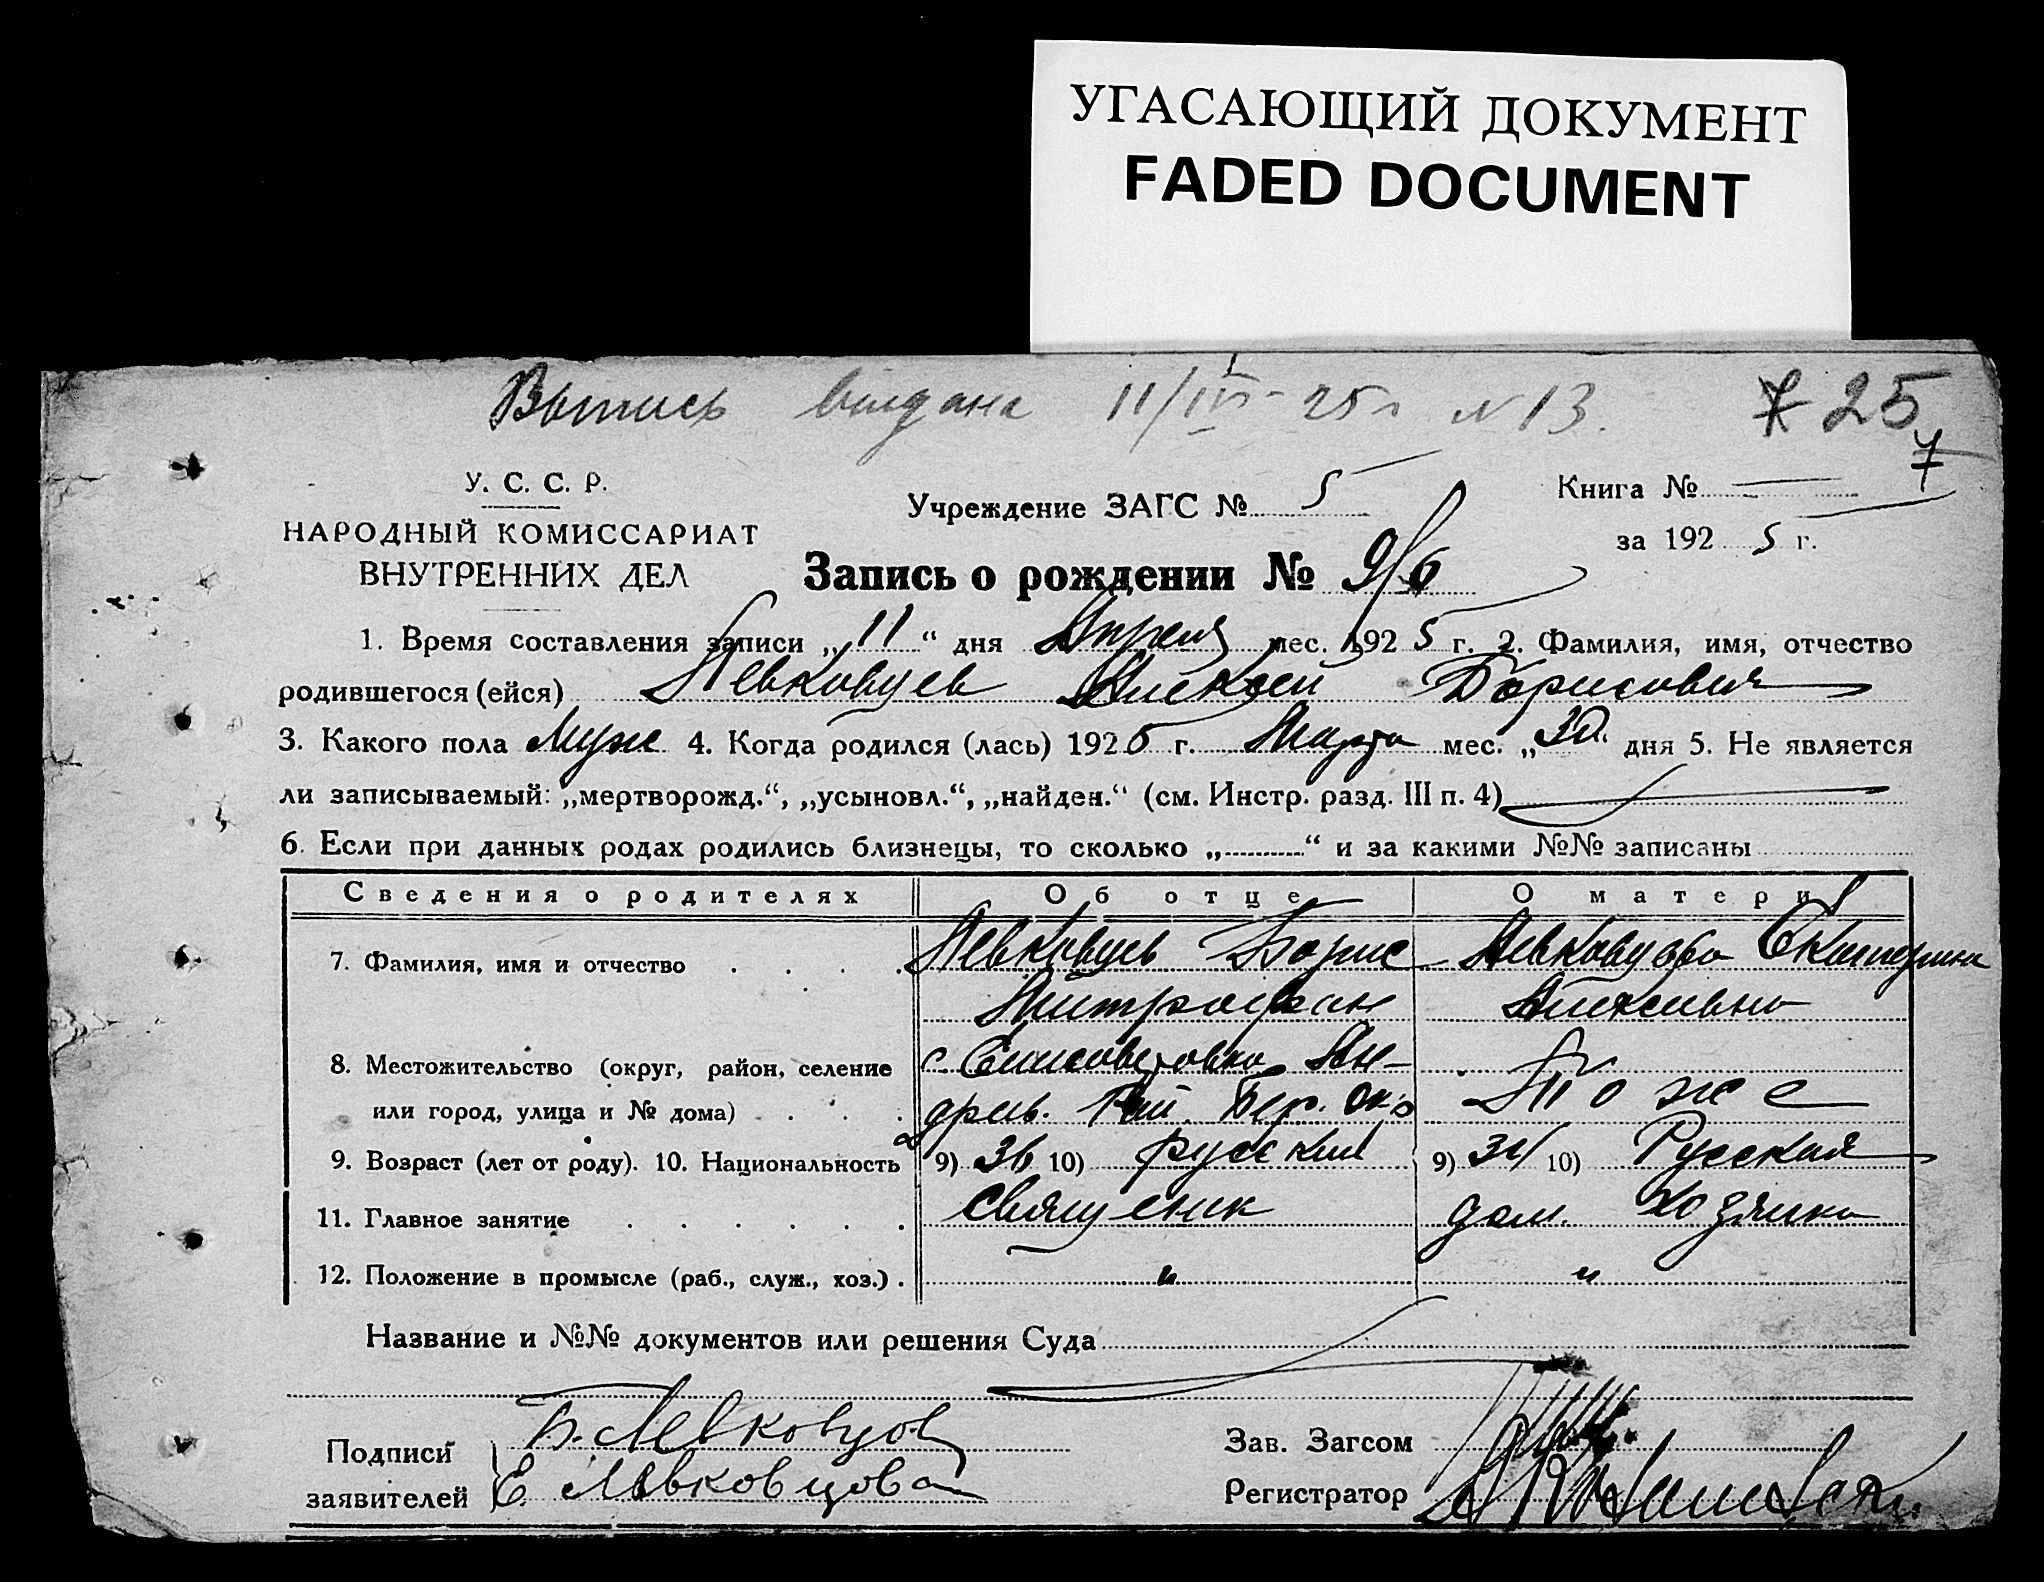 УГАСАЮЩИЙ ДОКУМЕНТ
FADED DOCUMENT
Выпись выдана 11/IV-25 г N 13. 7 25
7
У. С. С. Р.
НАРОДНЫЙ КОМИССАРИАТ
ВНУТРЕННИХ ДЕЛ
Учреждение ЗАГС № 5
Книга №
за 1925 г.
Запись о рождении № 9/6
1. Время составления записи „11“ дня Апреля мес. 1925 г. 2. Фамилия, имя, отчество
родившегося (ейся) Левковцев Алексей Борисович
3. Какого пола Муж 4. Когда родился (лась) 1925 г. Марта мес. „30“ дня 5. Не является
ли записываемый: „мертворожд.“, „усыновл.“, „найден.“ (см. Инстр. разд. III п. 4)
6. Если при данных родах родились близнецы, то сколько „..........“ и за какими №№ записаны
Сведения о родителях Об отце О матери
7. Фамилия, имя и отчество Левковцев Борис Левковцева Екатерина
Митрофан Алексеевна
8. Местожительство (округ, район, селение с Елисоветовка Ан-
или город, улица и № дома) дреев. Рай. Бер. Окр Тоже
9. Возраст (лет от роду). 10. Национальность 9) 36 10) русский 9) 34 10) Русская
11. Главное занятие Священик дом. Хозяйка
12. Положение в промысле (раб., служ., хоз.) . „ „
Название и №№ документов или решения Суда
Подписи
заявителей
Б. Левковцов
Е Левковцова
Зав. Загсом
Регистратор